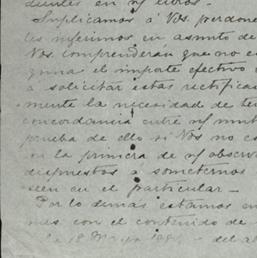 dientes en n/ libros.-
Suplicamos á Vds. perdone
les inferimos en asunto de
Vds. comprenderán que no en
guna el importe efectivo
a solicitar estas rectifica
mente la necesidad de te
concordancia entre n/ mut
prueba de ello si Vds no es
en la primera de n/ observ
dispuestos a someternos
seen en el particular -
Por lo demas estamos en
mes con el contenido de
18 Mayo - del a